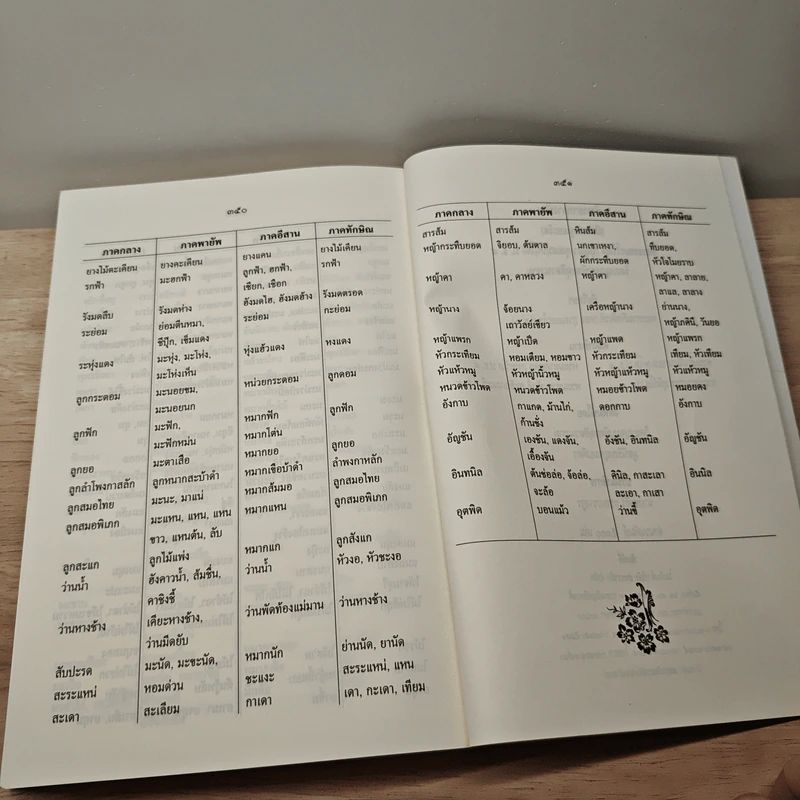 ๓๕๐
ภาคกลาง ภาคพายัพ ภาคอีสาน ภาคทักษิณ
ยางไม้ตะเคียน ยางตะเคียน ยางแคน ยางไม้เคียน
รกฟ้า มะฮกฟ้า ลูกฟ้า, ฮกฟ้า, รกฟ้า
เซียก, เชือก
รังมดลืบ รังมดห่าง ฮังมดไฮ, ฮังมดฮ้าง รังมดตรอด
ระย่อม ย่อมตีนหมา, ระย่อม กะย่อม
ซีปุ๊ก, เข็มแดง
ระพุ่งแดง มะพุ่ง, มะโห่ง, พุ่งแฮ้วแดง หงแดง
มะโห่งเห็น
ลูกกระดอม มะนอยขม, หน่วยกระดอม ลูกดอม
มะนอยนก
ลูกฟัก มะฟัก, หมากฟัก ลูกฟัก
มะฟักหม่น หมากโต่น
ลูกยอ มะตาเสือ หมากยอ ลูกยอ
ลูกลำโพงกาสลัก ลูกหนากสะบ้าดำ หมากเขือบ้าดำ ลำพงกาหลัก
ลูกสมอไทย มะนะ, มาแน่ หมากส้มมอ ลูกสมอไทย
ลูกสมอพิเภก มะแหน, แหน, แหน หมากแหน ลูกสมอพิเภก
ขาว, แหนต้น, ลับ
ลูกสะแก ลูกไม้แพ่ง หมากแก ลูกสังแก
ว่านน้ำ ฮังคาวน้ำ, ส้มชื่น, ว่านน้ำ หัวงอ, หัวชะงอ
คาชิงชี้
ว่านหางช้าง เดียะหางช้าง, ว่านพัดท้องแม่มาน ว่านหางช้าง
ว่านมีดยับ
สับปะรด มะนัด, มะขะนัด, หมากนัก ย่านนัด, ยานัด
สะระแหน่ หอมด่วน ชะแงะ สะระแหน่, แหน
สะเดา สะเลียม กาเดา เดา, กะเดา, เทียม
๓๕๑
ภาคกลาง ภาคพายัพ ภาคอีสาน ภาคทักษิณ
สารส้ม สารส้ม หินส้ม สารส้ม
หญ้ากระทืบยอด จิยอบ, ต้นตาล นกเขาเหงา, ทืบยอด,
ผักกระทืบยอด หัวใจไมยราบ
หญ้าคา คา, คาหลวง หญ้าคา หญ้าคา, ลาลาย,
ลาแล, ลาลาง
หญ้านาง จ้อยนาง เครือหญ้านาง ย่านนาง,
เถาวัลย์เขียว หญ้าภคินี, วันยอ
หญ้าแพรก หญ้าเป็ด หญ้าแพด หญ้าแพรก
หัวกระเทียม หอมเตียม, หอมขาว หัวกระเทียม เทียม, หัวเทียม
หัวแห้วหมู หัวหญ้านิ้วหมู หัวหญ้าแห้วหมู หัวแห้วหมู
หนวดข้าวโพด หนวดข้าวโพด หมอยข้าวโพด หมอยคง
อังกาบ กาแกด, ม้านไก่, ดอกกาบ อังกาบ
ก้านชั่ง
อัญชัน เองชัน, แดงชัน, อังชัน, อินทนิล อัญชัน
เอื้องจัน
อินทนิล ต้นช่อล่อ, จ้อล่อ, คินิล, กาสะเลา อินนิล
จะล้อ ละเอา, กาเสา
อุตพิต บอนแม้ว ว่านขี้ อุตพิต